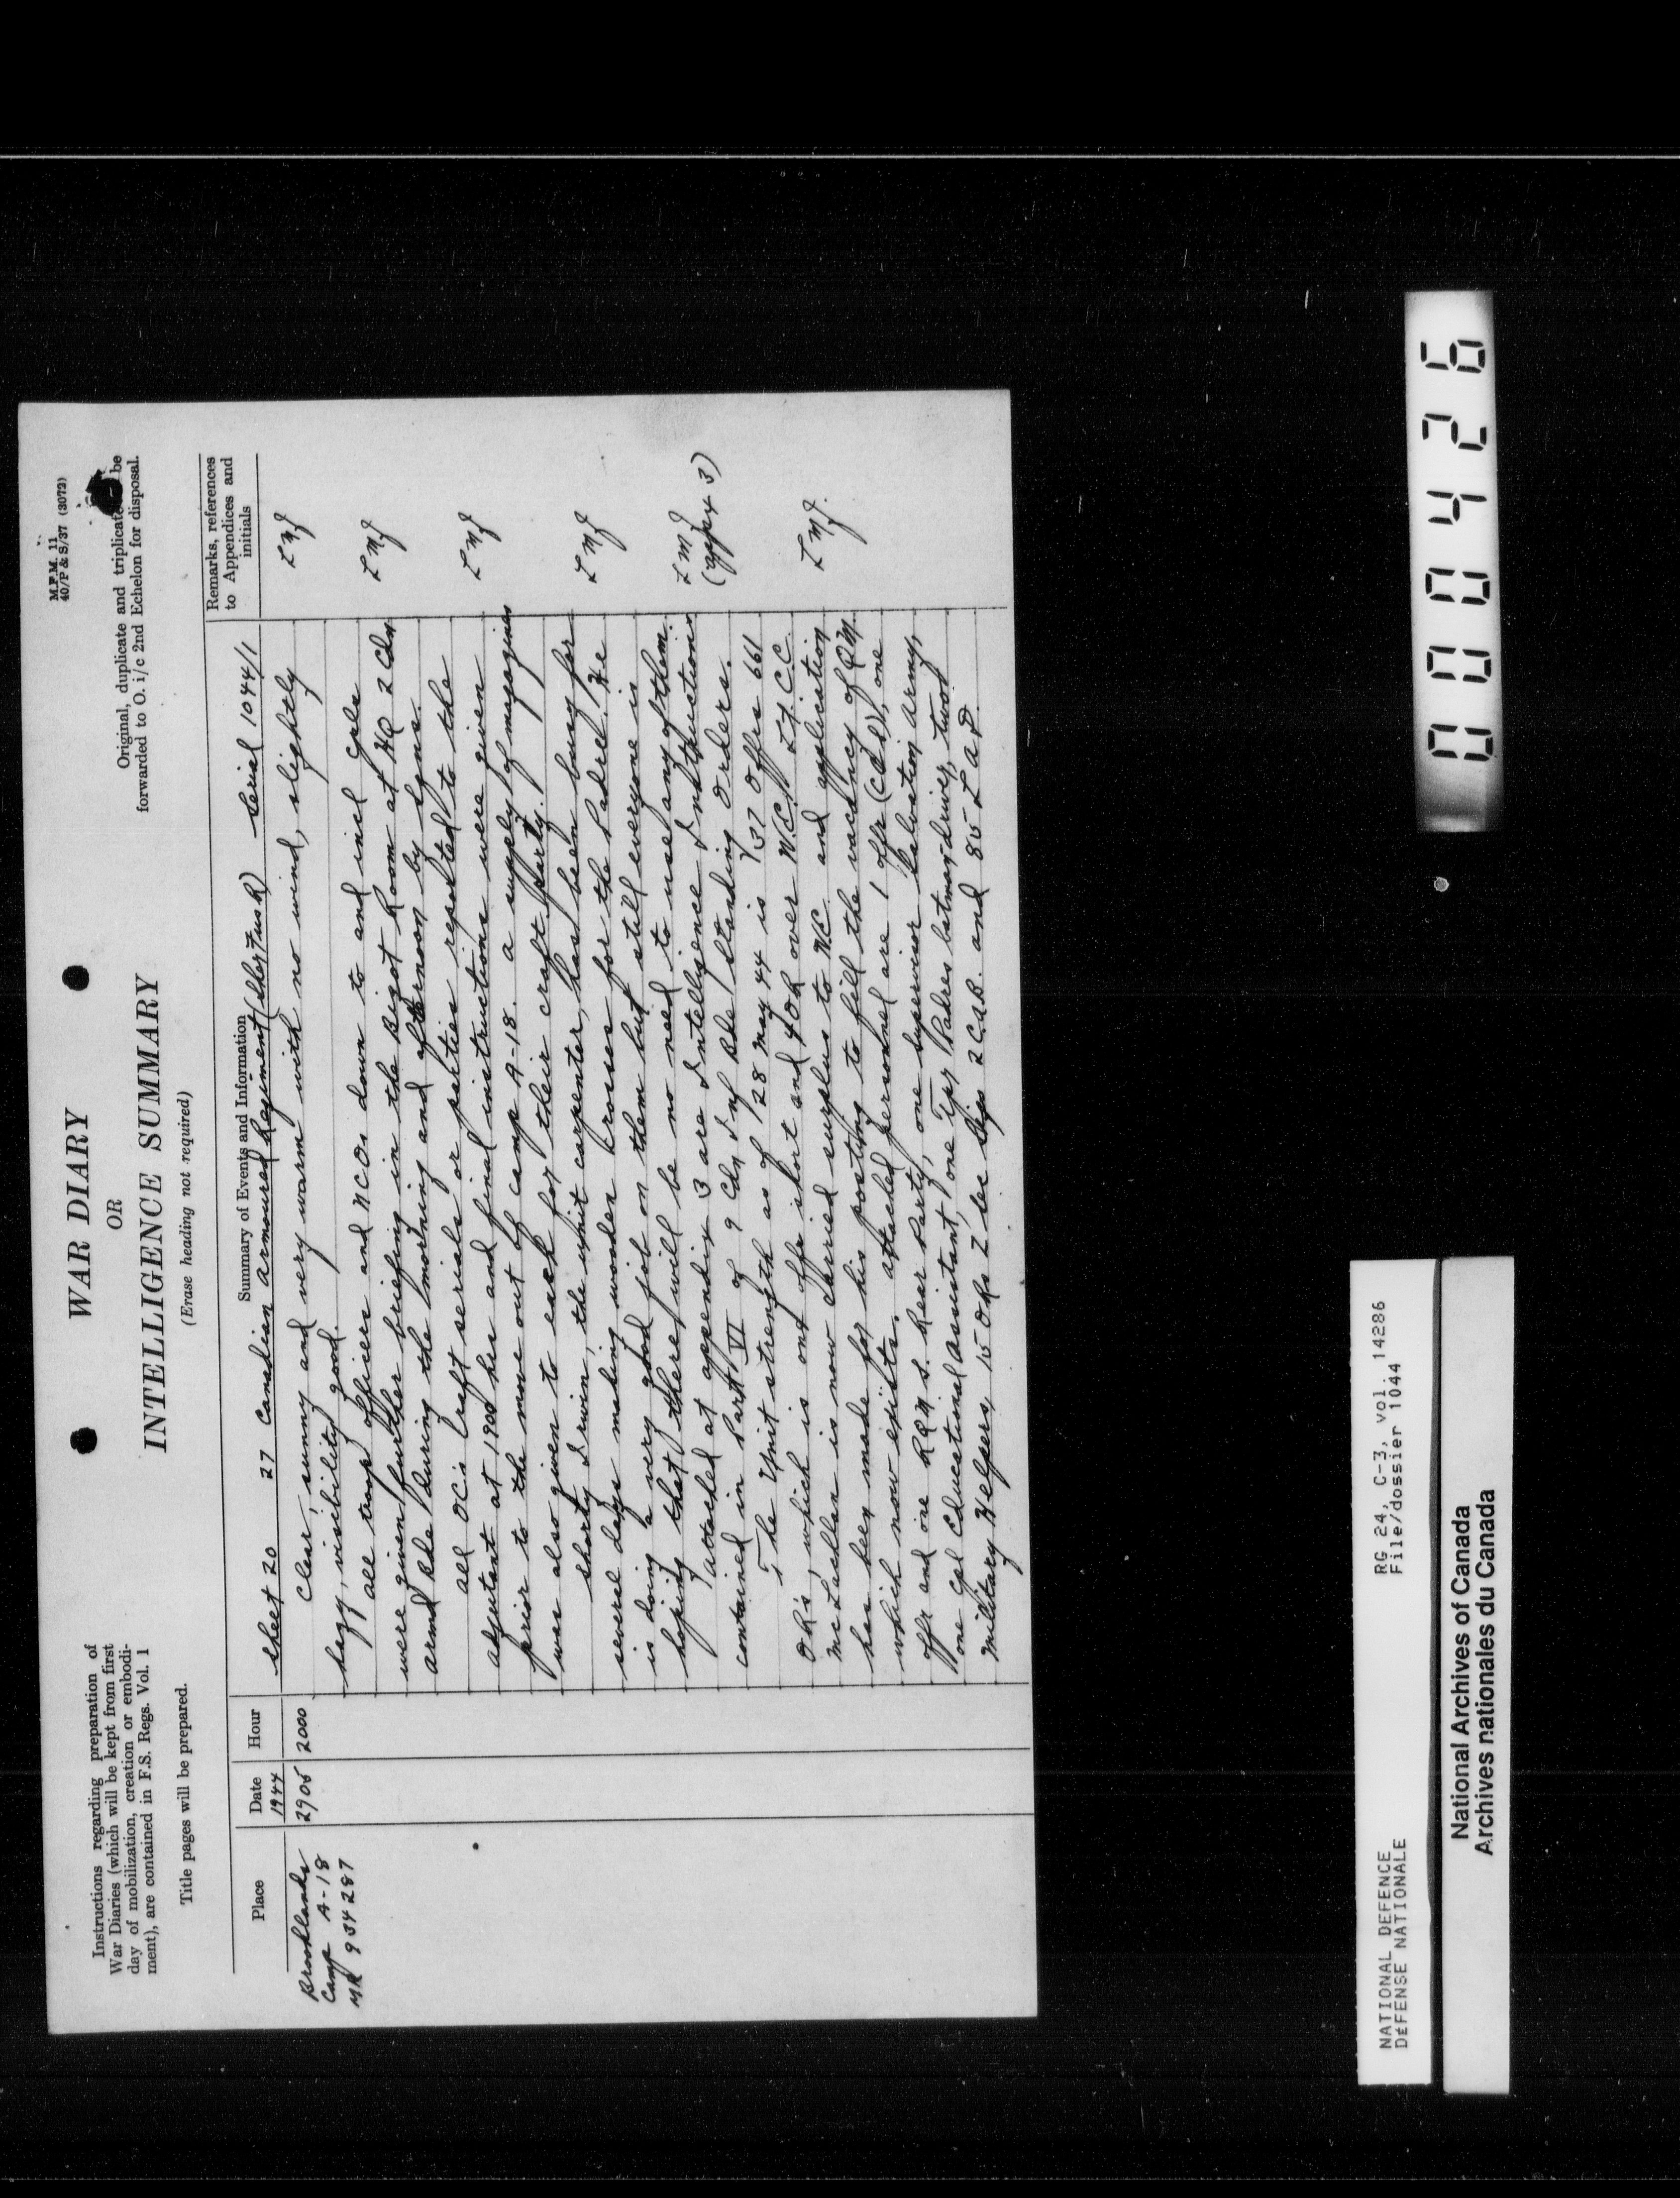 M.F.M. 11
40/P & S/37 (3072)
Instructions regarding preparation of
War Diaries (which will be kept from first
day of mobilization, creation or embodi-
ment), are contained in F.S. Regs. Vol. 1
Title pages will be prepared.
WAR DIARY
OR
INTELLIGENCE SUMMARY
(Erase heading not required)
Original, duplicate and triplicate be
forwarded to O. i/c 2nd Echelon for disposal.
Place
Date
1944
Hour
Summary of Events and Information
Remarks, references
to Appendices and
initials
Sheet 20 27 Canadian Armoured Regiment (Sher Fus R) Serial 1044/1
Brooklands
Camp A-18
MR 934287
2905
2000
Clear, sunny and very warm with no wind, slightly
LMJ
hazy, visibility good.
All troop officers and NCOs down to and incl Cpls
LMJ
were given further briefing in the Bigot Room at HQ 2 Cdn
Armd Bde during the morning and afternoon by Sqns.
All OC's craft serials or parties reported to the
LMJ
adjutant at 1900 hrs and final instructions were given
prior to the move out of camp A-18. A supply of magazines
was also given to each for their craft party.
Shorty Irwin, the unit carpenter, has been busy for
LMJ
several days making wooden crosses for the Padre. He
is doing a very good job on them but still everyone is
hoping that there will be no need to use any of them.
Attached at appendix 3 are Intelligence Instructions
LMJ
(appx 3)
contained in Part VI of 9 Cdn Inf Bde Standing Orders.
The Unit strength as of 28 May 44 is 37 Offrs 661
OR's, which is one offr short and 4 OR over W.E. Lt. C.C.
LMJ.
McLachlan is now carried surplus to WE and application
has been made for his posting to fill the vacancy of QM
which now exists. Attached personnel are 1 offr (CDS), one
offr and one RQMS. Rear Party, one supervisor Salvation Army,
one Cpl Educational Assistant, one Tpr Padres batman-driver, two
Military Helpers, 15 ORs Z Sec Sigs 2 CAB. and 85 LAD.
000426
NATIONAL DEFENCE RG 24, C-3, vol. 14286
DÉFENSE NATIONALE File/dossier 1044
National Archives of Canada
Archives nationales du Canada